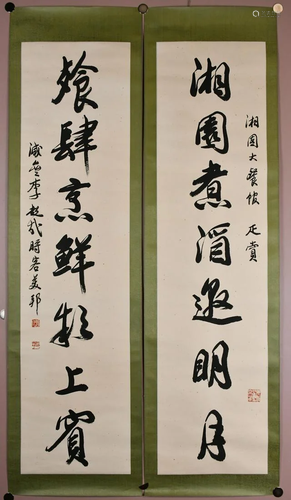 湘園大餐館 正賞
湘園煮酒邀明月
餐肆烹鮮款上賓
減叠李超哉時客美邦